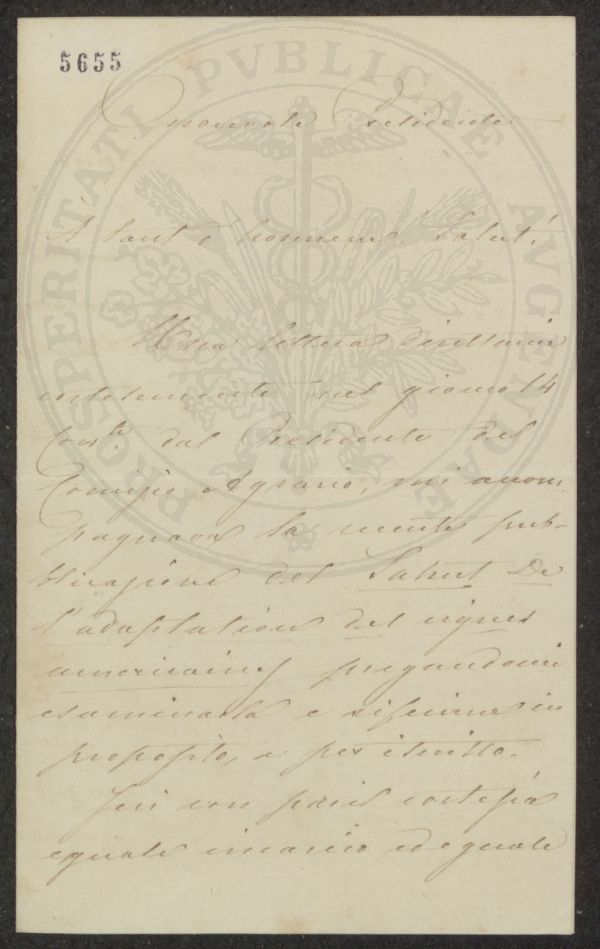 5655
PROSPERITATI PVBLICAE AVGENDAE
Onorevole Presidente
A tout honneur salut!
Una lettera direttami
cortesemente nel giorno 14
corr.te dal Presidente del
Comizio Agrario, mi accom-
pagnava la recente pub-
blicazione del Sahut De
l'adaptation des vignes
americaines pregandomi
esaminarla e riferirne in
proposito, e per iscritto.
Ieri con pari cortesia
eguale incarico ed eguale